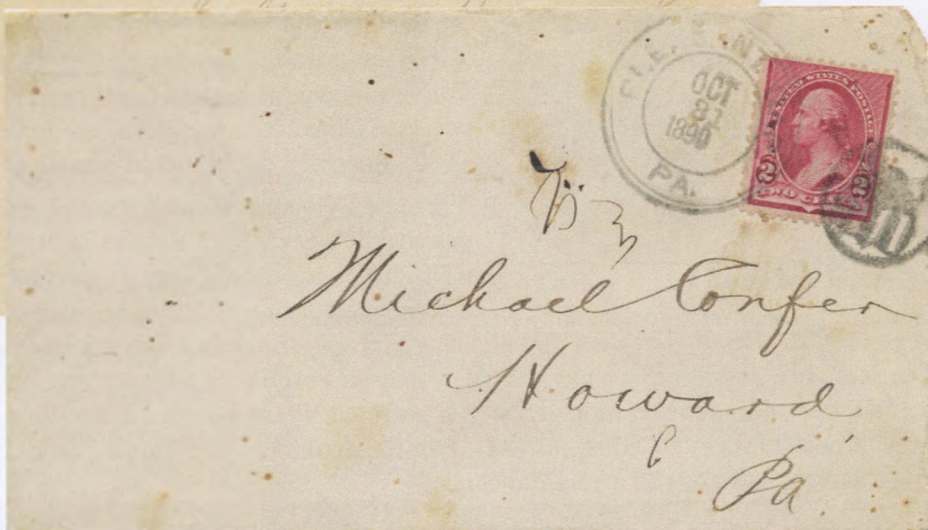 OCT
31
1890
PA.
UNITED STATES POSTAGE
2 2
TWO CENTS
Michael Confer
Howard
Pa.